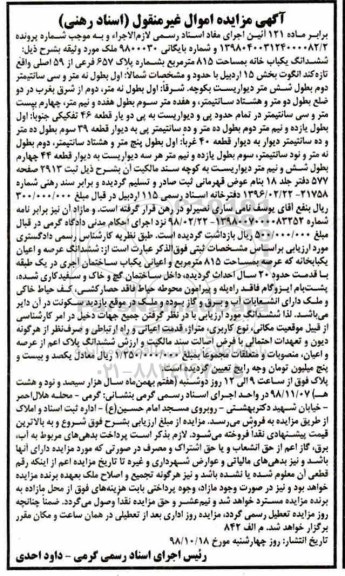 آگهی مزایده اموال غیرمنقول (اسناد رهنی)
برابر ماده ۱۲۱ آئین اجرای مفاد اسناد رسمی لازم‌الاجراء و به موجب شماره پرونده
۱۳۹۸۰۴۰۰۳۱۲۴۰۰۰۰۸۲/۲ و شماره بایگانی ۹۸۰۰۰۳۰ ملک مورد وثیقه بشرح ذیل:
ششدانگ یکباب خانه بمساحت ۸۱۵ مترمربع بشماره پلاک ۶۵۷ فرعی از ۵۹ اصلی واقع
تازه‌کند انگوت بخش ۱۵ اردبیل با حدود و مشخصات شمالا: اول بطول نه متر و سی سانتیمتر
دوم بطول شش متر دیواریست بکوچه. شرقا: اول بطول نه متر، دوم از شرق بغرب در دو
ضلع بطول دو متر و هشتاد سانتیمتر، و هفده متر سوم بطول هفده و نیم متر، چهارم بیست
متر و سی سانتیمتر در تمام حدود پی و دیواریست به پی دو یار قطعه ۴۶ تفکیکی جنوبا: اول
بطول یازده و نیم متر دوم بطول ده متر و ده سانتیمتر پی به دیوار قطعه ۳۹ سوم بطول ده متر
و ده سانتیمتر دیوار به دیوار قطعه ۴۰ غربا: اول بطول پنج متر و هشتاد سانتیمتر، دوم بطول
نه متر و نود سانتیمتر، سوم بطول یازده و نیم متر هر سه دیواریست به دیوار قطعه ۴۴ چهارم
بطول شش متر دیواریست به کوچه سند مالکیت آن بشرح ذیل ثبت ۲۹۱۳ صفحه
۵۷۷ دفتر جلد ۱۸ بنام عوض قهرمانی ثبت صادر و تسلیم گردیده و برابر سند رهنی شماره
۲۱۷۵۸-۱۳۹۶/۰۲/۲۲ دفتر خانه اسناد رسمی ۱۱۵ اردبیل در قبال مبلغ ۳۰۰/۰۰۰/۰۰۰
ریال بنفع آقای یوسفعلی ساری نصیرلو در رهن قرار گرفته است. و مازاد آن نیز برابر نامه
شماره ۱۳۹۸۰۰۷۰۰۰۰۸۳۳۵۲-۹۸/۰۲/۲۲ نزد اجرای احکام مدنی دادگاه گرمی در قبال
مبلغ ۵۰۰/۰۰۰/۰۰۰ ریال بازداشت گردیده است. طبق نظریه کارشناس رسمی دادگستری
مورد ارزیابی براساس مشخصات ثبتی فوق‌الذکر عبارت است از: ششدانگ عرصه و اعیان
یکبابخانه که عرصه بمساحت ۸۱۵ مترمربع و اعیانی یکباب ساختمان آجری در یک طبقه
با قدمت حدود ۲۰ سال احداث گردیده، داخل ساختمان گچ و خاک و سفیدکاری شده،
پشت‌بام ایزوگام فاقد راه‌پله و پیرامون محوطه حیاط فاقد حصارکشی، کف حیاط خاکی
و ملک دارای انشعابات آب و برق و گاز بوده و ملک در موقع بازدید سکونت در آن دایر
می‌باشد. لذا ششدانگ مورد ارزیابی با در نظر گرفتن جمیع جهات دخیل در امر کارشناسی
از قبیل موقعیت مکانی، نوع کاربری، متراژ، قدمت اعیانی و راه ارتباطی و صرف‌نظر از هرگونه
دیون و تعهدات احتمالی با فرض اصالت سند مالکیت و ارزش ششدانگ پلاک اعم از عرصه
و اعیان، منصوبات و متعلقات مجموعا بمبلغ ۱/۲۵۰/۰۰۰/۰۰۰ ریال معادل یکصد و بیست و
پنج میلیون تومان وجه رایج تعیین گردیده است.
پلاک فوق از ساعت ۹ الی ۱۲ روز دوشنبه (هفتم بهمن‌ماه سال هزار سیصد و نود و هشت
۹۸/۱۱/۰۷) در واحد اجرای اسناد رسمی گرمی بنشانی: گرمی - محله هلال‌احمر
- خیابان شهید دکتر بهشتی - روبروی مسجد امام حسین(ع) - اداره ثبت اسناد و املاک
از طریق مزایده به فروش می‌رسد. مزایده از مبلغ ارزیابی بشرح فوق شروع و به بالاترین
قیمت پیشنهادی نقدا فروخته می‌شود. لازم بذکر است پرداخت بدهی‌های مربوط به آب،
برق، گاز اعم از حق انشعاب و یا حق اشتراک و مصرف در صورتی که مورد مزایده دارای آنها
باشد و نیز بدهی‌های مالیاتی و عوارض شهرداری و غیره تا تاریخ مزایده اعم از اینکه رقم
قطعی آن معلوم شده یا نشده باشد و نیز هرگونه تجمیع و اصلاح ملک بعهده برنده مزایده
خواهد بود و نیز در صورت وجود مازاد، وجوه پرداختی بابت هزینه‌های فوق از محل مازاد به
برنده مزایده مسترد خواهد شد و نیم‌عشر و حق مزایده نقدا وصول می‌گردد. ضمنا چنانچه
روز مزایده تعطیل رسمی گردد، مزایده روز اداری بعد از تعطیلی در همان ساعت و مکان مقرر
برگزار خواهد شد. م الف ۸۴۲
تاریخ انتشار: روز چهارشنبه مورخ ۹۸/۱۰/۱۸
رئیس اجرای اسناد رسمی گرمی - داود احدی